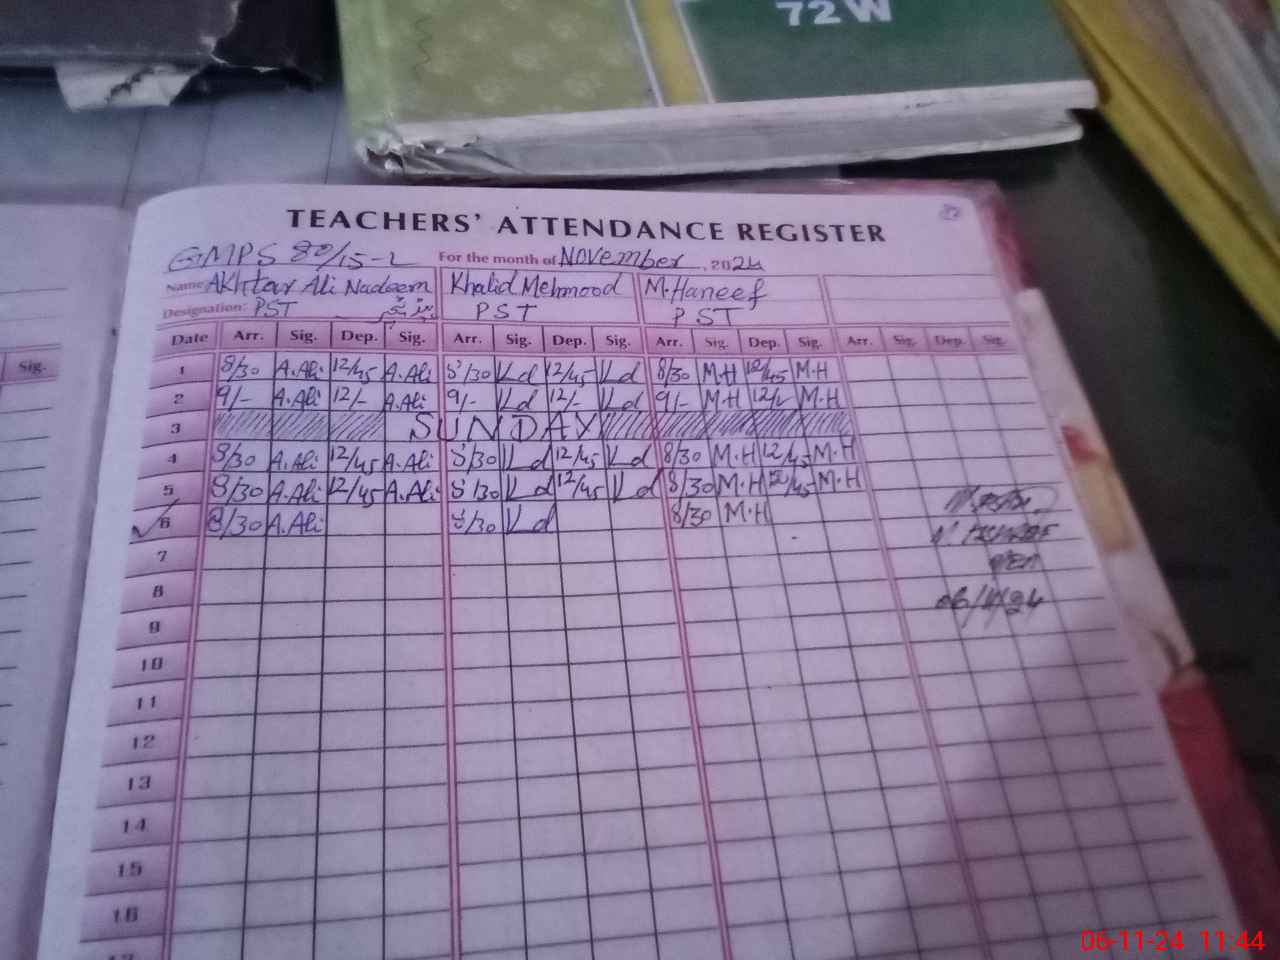 72W
TEACHERS' ATTENDANCE REGISTER
GMPS 80/15-L For the month of November, 2024
Name Akhtar Ali Nadeem Khalid Mehmood M.Haneef
Designation: PST PST PST
Date Arr. Sig. Dep. Sig. Arr. Sig. Dep. Sig. Arr. Sig. Dep. Sig. Arr. Sig. Dep. Sig.
Sig.
1 8/30 A.Ali 12/45 A.Ali 8/30 Kd 12/45 Kd 8/30 M.H 12/45 M.H
2 9/- A.Ali 12/- A.Ali 9/- Kd 12/- Kd 9/- M.H 12/- M.H
3 SUNDAY
4 8/30 A.Ali 12/45 A.Ali 8/30 Kd 12/45 Kd 8/30 M.H 12/45 M.H
5 8/30 A.Ali 12/45 A.Ali 8/30 Kd 12/45 Kd 8/30 M.H 12/45 M.H
6 8/30 A.Ali 8/30 Kd 8/30 M.H
7
8
06/11/24
9
10
11
12
13
14
15
16
06-11-24 11:44